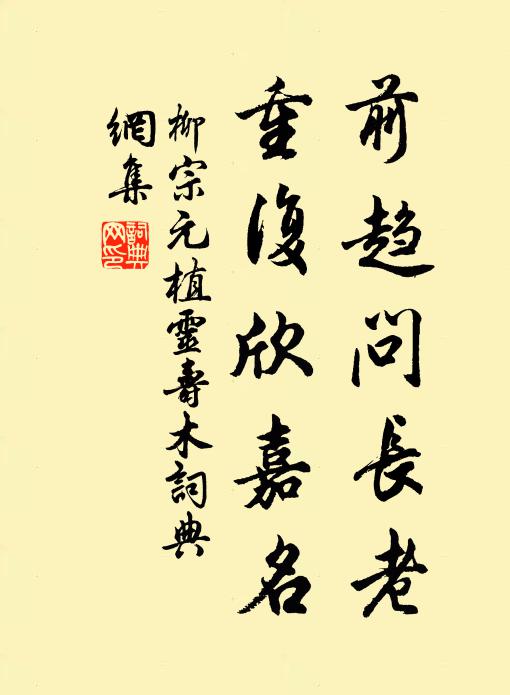 前趋问長老
重復欣嘉名
柳宗元植靈壽木詞典
網集
詞典
网印